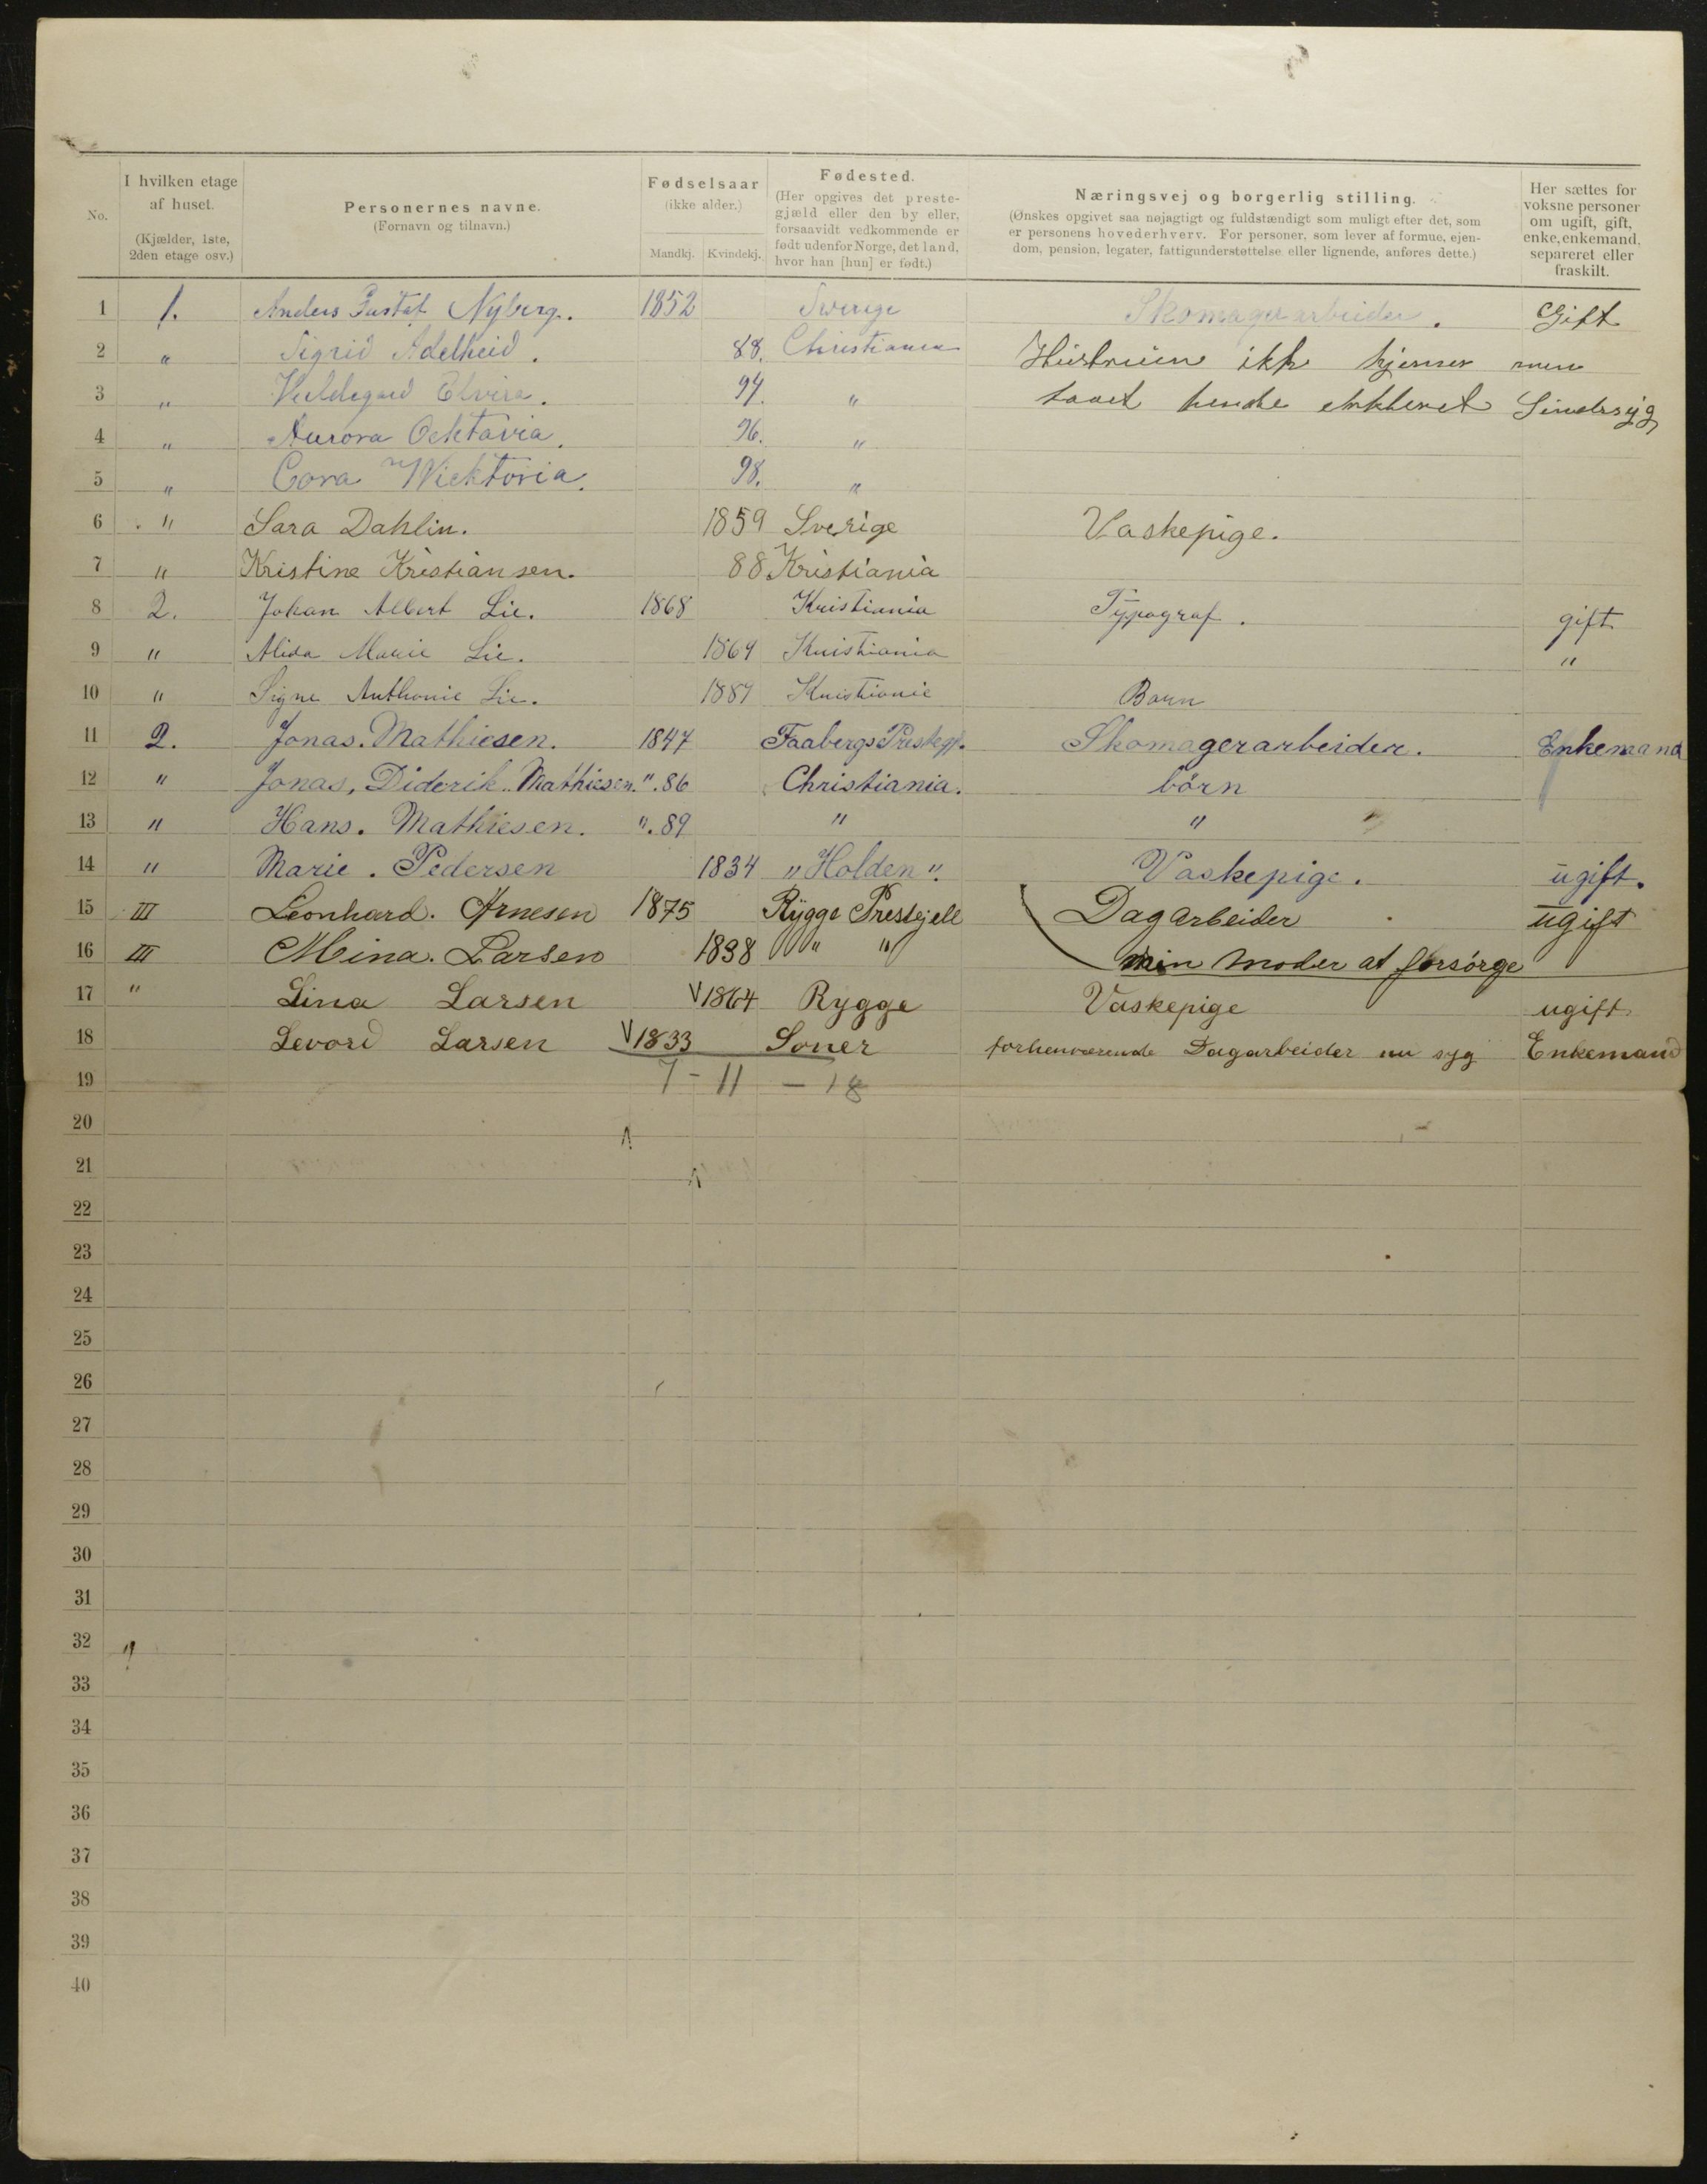 No.
I hvilken etage af huset. (Kjælder, 1ste, 2den etage osv.)
Personernes navne. (Fornavn og tilnavn.)
Fødselsaar (ikke alder.) Mandkj. Kvindekj.
Fødested. (Her opgives det prestegjæld eller den by eller, forsaavidt vedkommende er født udenfor Norge, det land, hvor han [hun] er født.)
Næringsvej og borgerlig stilling. (Ønskes opgivet saa nøjagtigt og fuldstændigt som muligt efter det, som er personens hovederhverv. For personer, som lever af formue, ejendom, pension, legater, fattigunderstøttelse eller lignende, anføres dette.)
Her sættes for voksne personer om ugift, gift, enke, enkemand, separeret eller fraskilt.
1 1. Anders Gustaf Nyberg. 1852 Sverige Skomager arbeider. Gift
2 " Sigrid Adelheid. 88. Christiania Hustruen ikk hjemer men
3 " Elvira. 94. " hende Sindssyg
4 " Aurora Ocktavia. 96. "
5 " Cora Wicktoria. 98. "
6 " Sara Dahlin. 1859 Sverige Vaskepige.
7 " Kristine Kristiansen. 88 Kristiania
8 2. Johan Albert Lie. 1868 Kristiania Typograf. gift
9 " Alida Marie Lie. 1864 Kristiania "
10 " Signe Anthonie Lie. 1889 Kristiania Barn
11 2. Jonas. Mathiesen. 1847 Faabergs Prestegj. Skomagerarbeider. Enkemand
12 " Jonas, Diderik. Mathiesen. ". 86 Christiania. börn
13 " Hans. Mathiesen. ". 89 " "
14 " Marie. Pedersen 1834 "Holden". Vaskepige. ugift.
15 III Leonhard. Arnesen 1875 Rygge Prestejell Dagarbeider ugift
16 III Mina. Larsen 1838 " " min moder at forsörge
17 " Lina Larsen V 1864 Rygge Vaskepige ugift
18 Levord Larsen V 1833 Soner forhenværende Dagarbeider nu syg Enkemand
19 7 - 11 - 18
20
21
22
23
24
25
26
27
28
29
30
31
32 "
33
34
35
36
37
38
39
40